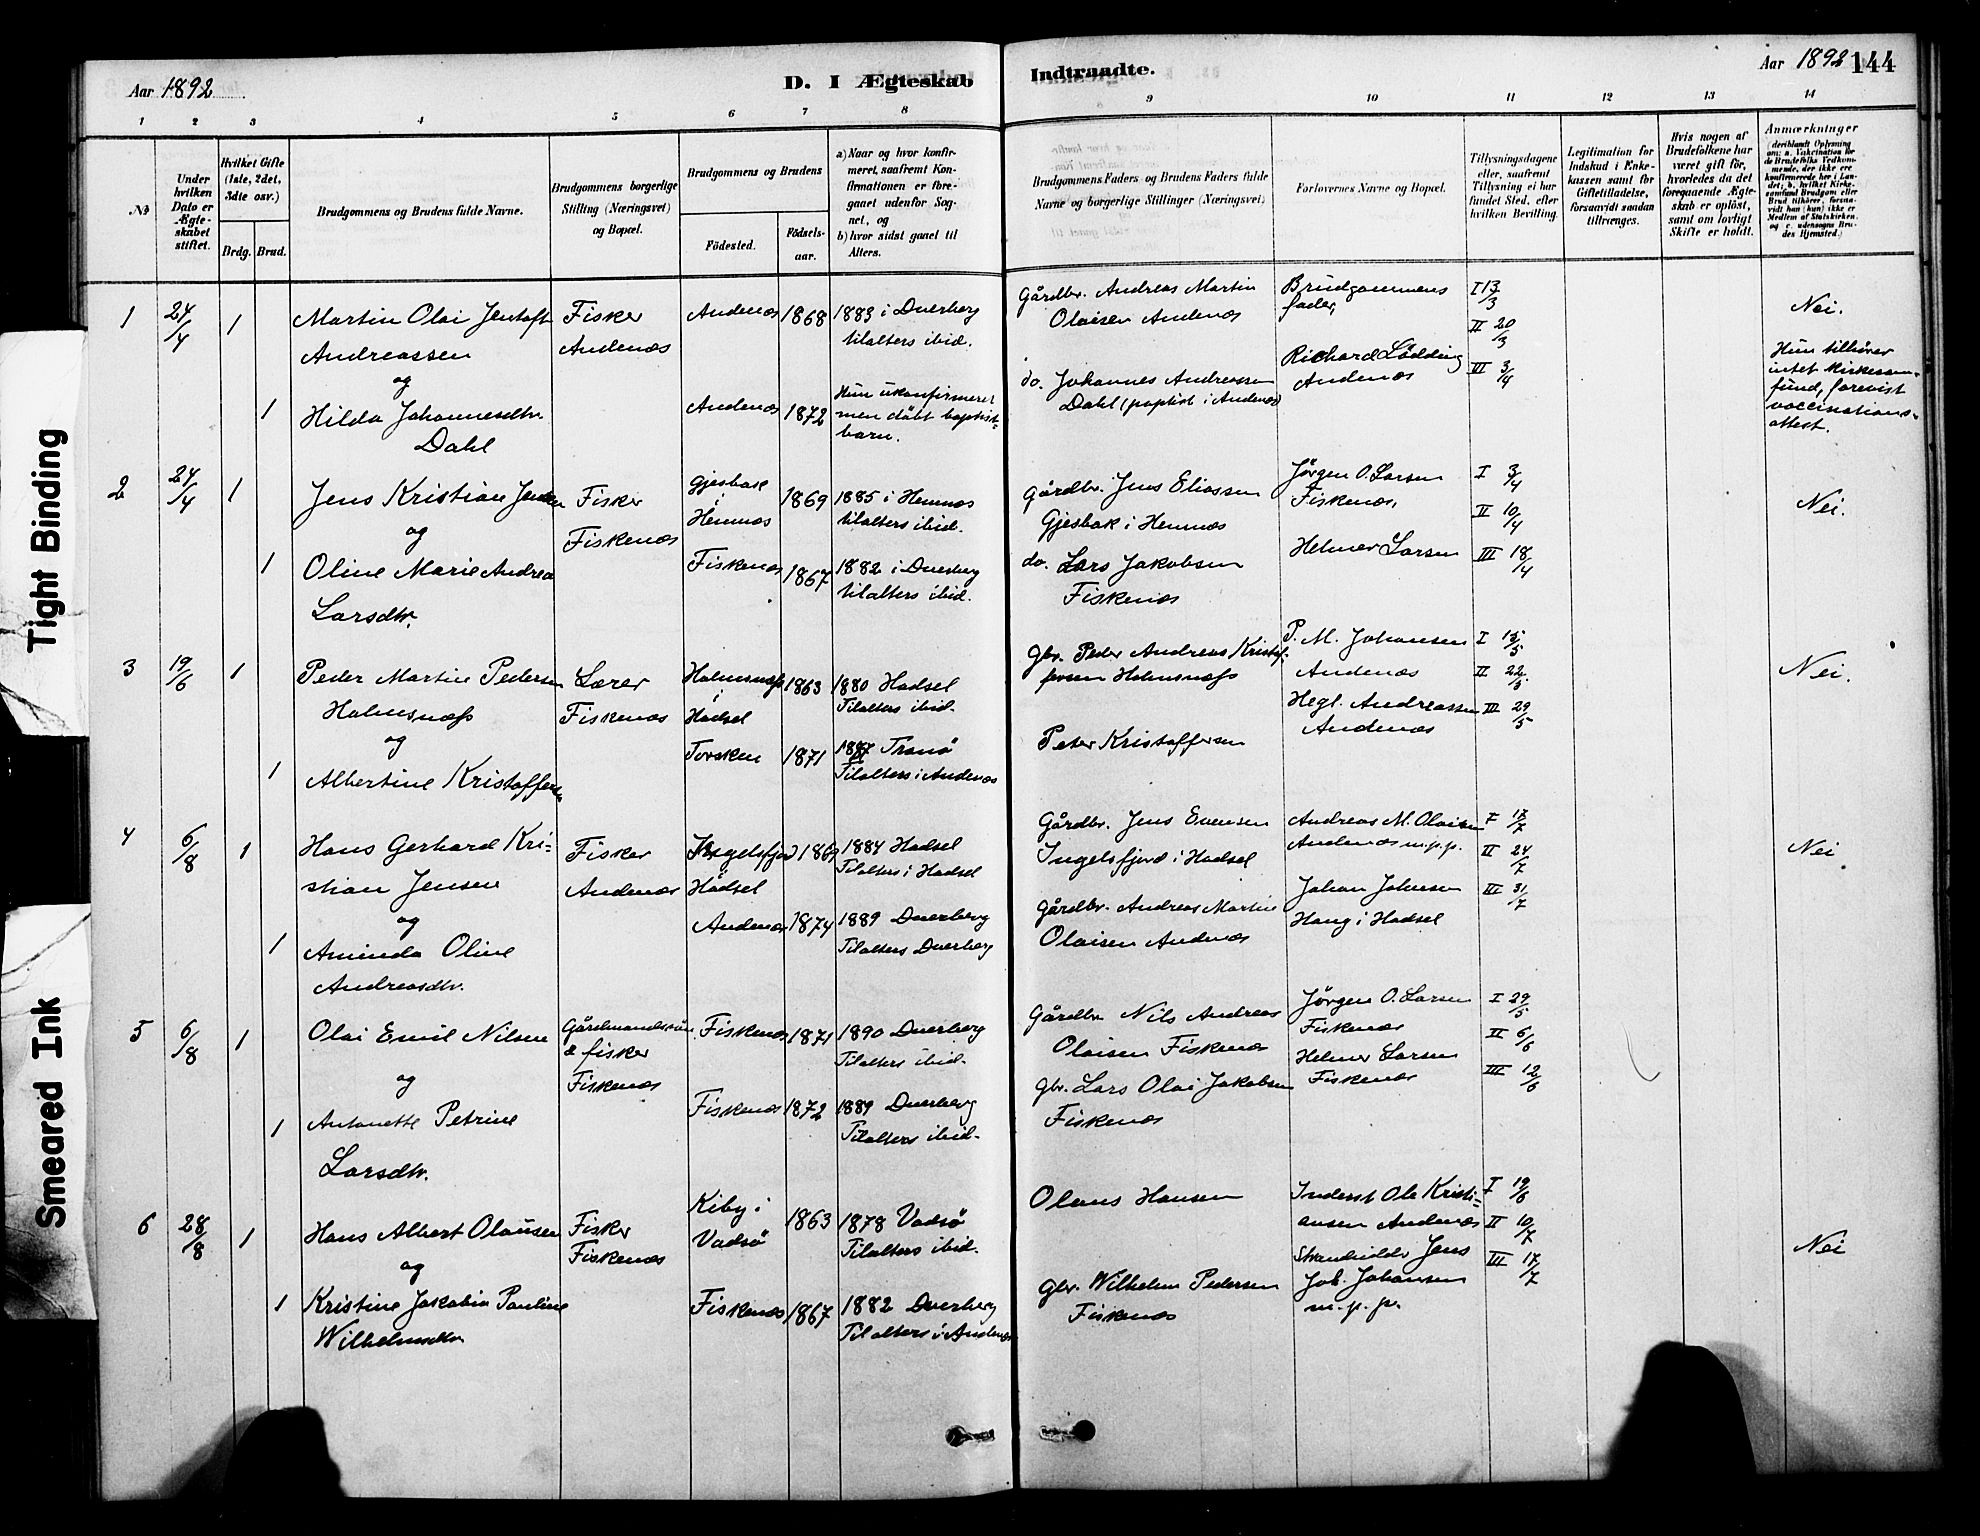 Tight Binding
Smeared Ink
Aar 1892
D. I Ægteskab
Indtraadte.
Aar 1892
144
1 2 3 4 5 6 7 8 9 10 11 12 13 14
No
Under hvilken Dato er Ægteskabet stiftet.
Hvilket Gifte (1ste, 2det, 3dte osv.)
Brdg. Brud.
Brudgommens og Brudens fulde Navne.
Brudgommens borgerlige Stilling (Næringsvei) og Bopæl.
Brudgommens og Brudens
Födested.
Födselsaar.
a) Naar og hvor konfirmeret, saafremt Konfirmationen er foregaaet udenfor Sognet, og
b) hvor sidst gaaet til Alters.
Brudgommens Faders og Brudens Faders fulde Navne og borgerlige Stillinger (Næringsvei)
Forlovernes Navne og Bopæl.
Tillysningsdagene eller, saafremt Tillysning ei har fundet Sted, efter hvilken Bevilling.
Legitimation for Indskud i Enkekassen samt for Giftetilladelse, forsaavidt saadan tiltrænges.
Hvis nogen af Brudefolkene har været gift för, hvorledes da det foregaaende Ægteskab er oplöst, samt om lovligt Skifte er holdt.
Anmærkninger
(deriblandt Oplysning om: a. Vakcination for de Brudefolks Vedkommende, der ikke ere konfirmerede her i Landet; b. hvilket Kirkesamfund Brudgom eller Brud tilhörer, forsaavidt han (hun) ikke er Medlem af Statskirken, og c. udensogns Brudes Hjemsted.)
1 24/4 1 Martin Olai Jentoft Fisker Andenæs 1868 1883 i Dverberg
Andreassen Andenæs tilalters ibid.
og
1 Hilda Johannesdtr. Andenæs 1872 Hun ukonfirmeret
Dahl men döbt baptist-
barn.
Gårdbr. Andreas Martin Brudgommens I 13/3 Nei.
Olaisen Andenæs fader, II 20/3
do. Johannes Andreassen Richard Lødding III 3/4
Dahl (baptist i Andenæs) Andenæs
Hun tilhører
intet kirkesam-
fund, forevist
vaccinations-
attest.
2 24/4 1 Jens Kristian Jensen Fisker Gjesbak 1869 1885 i Hemnæs
og Fiskenæs i Hemnæs tilalters ibid.
1 Oline Marie Andrea Fiskenæs 1867 1882 i Dverberg
Larsdtr. tilalters ibid.
Gårdbr. Jens Eliassen Jørgen O. Larsen I 3/4 Nei.
Gjesbak i Hemnæs Fiskenæs, II 10/4
do. Lars Jakobsen Helmer Larsen III 18/4
Fiskenæs
3 19/6 1 Peder Martin Pedersen Lærer Holmsnæs 1863 1880 Hadsel
Holmsnæs Fiskenæs i Hadsel Tilalters ibid.
og
1 Albertine Kristoffersen Torsken 1871 Tranø
Tilalters i Andenæs
Gbr. Peder Andreas Kristof- P. M. Johansen I 15/5 Nei.
fersen Holmsnæs Andenæs II
Peter Kristoffersen Hegl. Andreassen III 29/5
Andenæs
4 6/8 1 Hans Gerhard Kri- Fisker Ingelsfjord 1869 1884 Hadsel
stian Jensen Andenæs Hadsel Tilalters i Hadsel
og
1 Aminda Oline Andenæs 1874 1889 Dverberg
Andreasdtr. Tilalters Dverberg
Gårdbr. Jens Evensen Andreas M. Olaisen I 17/7 Nei
Ingelsfjord i Hadsel Andenæs m.p.p. II 24/7
Gårdbr. Andreas Martin Johan Johnsen III 31/7
Olaisen Andenæs Haug i Hadsel
5 6/8 1 Olai Emil Nilsen Gårdmandssøn Fiskenæs 1871 1890 Dverberg
og & fisker Tilalters ibid.
Fiskenæs
1 Antonette Petrine Fiskenæs 1872 1889 Dverberg
Larsdtr. Tilalters ibid.
Gårdbr. Nils Andreas Jørgen O. Larsen I 29/5
Olaisen Fiskenæs Fiskenæs II 5/6
Gbr. Lars Olai Jakobsen Helmer Larsen III 12/6
Fiskenæs Fiskenæs
6 28/8 1 Hans Albert Olausen Fisker Kiby i 1863 1878 Vadsø
og Fiskenæs Vadsø Tilalters ibid.
1 Kristine Jakobia Pauline Fiskenæs 1867 1882 Dverberg
Wilhelmsdtr Tilalters i Andenæs
Olaus Hansen Inderst Ole Kristi- I 19/6 Nei
ansen Andenæs II 10/7
Gbr. Wilhelm Pedersen Strandsidder Jens III 17/7
Fiskenæs Joh. Johansen
m.p.p.